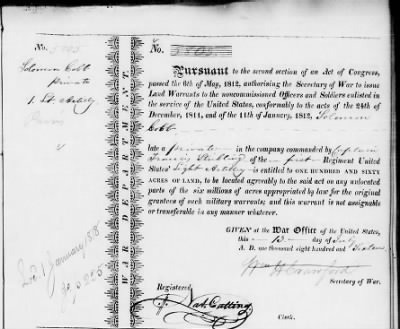 No.
Solomon Cobb
Private
1. Lt. Artily
WAR DEPARTMENT.
No.
Pursuant to the second section of an Act of Congress,
passed the 6th of May, 1812, authorising the Secretary of War to issue
Land Warrants to the noncommissioned Officers and Soldiers enlisted in
the service of the United States, conformably to the acts of the 24th of
December, 1811, and of the 11th of January, 1812, Solomon
Cobb
late a private in the company commanded by Captain
Francis Stribling of the first Regiment United
States' Light Artily is entitled to ONE HUNDRED AND SIXTY
ACRES OF LAND, to be located agreeably to the said act on any unlocated
parts of the six millions of acres appropriated by law for the original
grantees of such military warrants; and this warrant is not assignable
or transferable in any manner whatever.
GIVEN at the War Office of the United States,
this 13 day of July
A. D. one thousand eight hundred and Sixteen
Wm H Crawford
Secretary of War.
Registered
Nat. Cutting
Clerk.
January